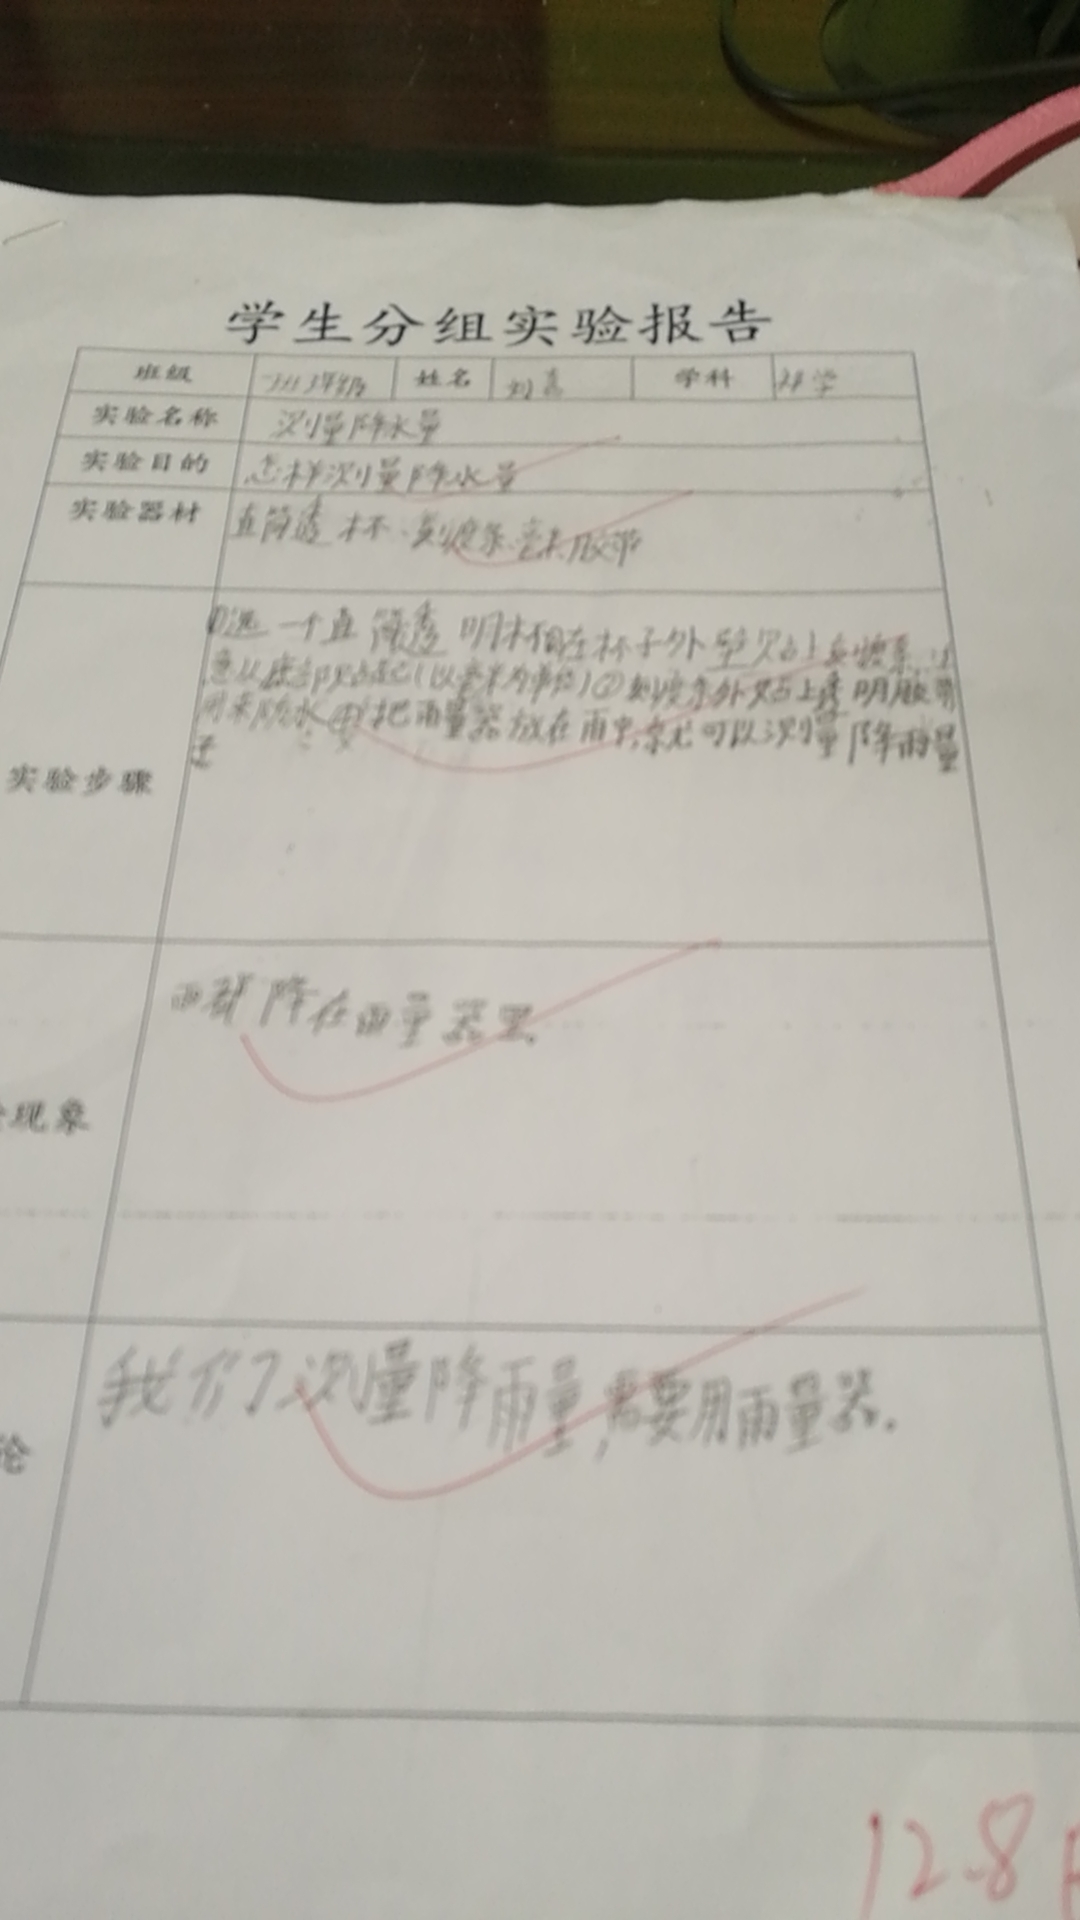 学生分组实验报告
班级 三年级 姓名 刘 学科 科学
实验名称 测量降水量
实验目的 怎样测量降水量
实验器材 直筒透 杯、刻度条、透明胶带
①选一个直筒透明杯 在杯子外壁贴上刻度条、注
意从底部贴起(以毫米为单位)②刻度条外贴上透明胶带
用来防水 ④把雨量器放在雨中,就可以测量降雨量
实验步骤
雨都降在雨量器里.
现象
我们测量降雨量,需要用雨量器.
论
12.8